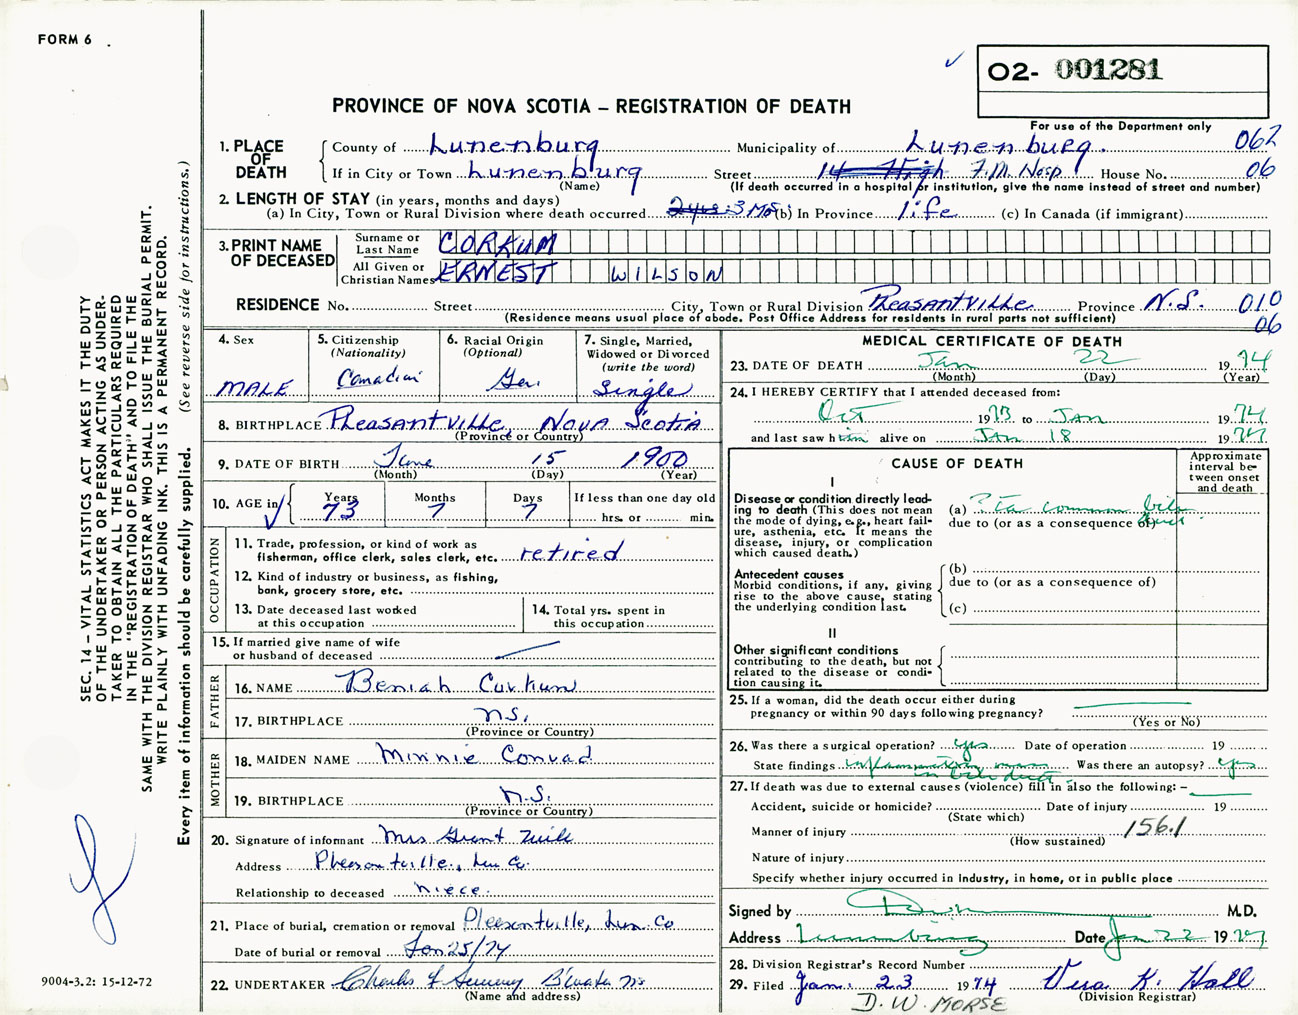 FORM 6
O2- 001281
PROVINCE OF NOVA SCOTIA – REGISTRATION OF DEATH
For use of the Department only
062
06
1. PLACE OF DEATH
County of Lunenburg Municipality of Lunenburg.
If in City or Town Lunenburg Street 14 High F.M. Hosp House No.
(Name) (If death occurred in a hospital or institution, give the name instead of street and number)
2. LENGTH OF STAY (in years, months and days)
(a) In City, Town or Rural Division where death occurred 3 Mos. (b) In Province life (c) In Canada (if immigrant)
3. PRINT NAME OF DECEASED
Surname or Last Name CORKUM
All Given or Christian Names ERNEST WILSON
RESIDENCE No. Street City, Town or Rural Division Pleasantville Province N.S. 010
(Residence means usual place of abode. Post Office Address for residents in rural parts not sufficient) 06
4. Sex
MALE
5. Citizenship
(Nationality)
Canadian
6. Racial Origin
(Optional)
Ger.
7. Single, Married,
Widowed or Divorced
(write the word)
Single
8. BIRTHPLACE Pleasantville, Nova Scotia
(Province or Country)
9. DATE OF BIRTH June 15 1900
(Month) (Day) (Year)
10. AGE in
Years Months Days If less than one day old
73 7 7 hrs. or min.
OCCUPATION
11. Trade, profession, or kind of work as
fisherman, office clerk, sales clerk, etc. retired
12. Kind of industry or business, as fishing,
bank, grocery store, etc.
13. Date deceased last worked
at this occupation
14. Total yrs. spent in
this occupation
15. If married give name of wife
or husband of deceased
FATHER
16. NAME Beniah Corkum
17. BIRTHPLACE N.S.
(Province or Country)
MOTHER
18. MAIDEN NAME Minnie Conrad
19. BIRTHPLACE N.S.
(Province or Country)
20. Signature of informant Mrs Grant
Address Pleasantville, Lun Co.
Relationship to deceased niece.
21. Place of burial, cremation or removal Pleasantville, Lun. Co
Date of burial or removal Jan 25/74
22. UNDERTAKER Charles B'Water NS
(Name and address)
MEDICAL CERTIFICATE OF DEATH
23. DATE OF DEATH Jan 22 19 74
(Month) (Day) (Year)
24. I HEREBY CERTIFY that I attended deceased from:
Oct 19 73 to Jan 19 74
and last saw him alive on Jan 18 19 74
CAUSE OF DEATH
Approximate
interval be-
tween onset
and death
I
Disease or condition directly lead-
ing to death (This does not mean
the mode of dying, e.g., heart fail-
ure, asthenia, etc. It means the
disease, injury, or complication
which caused death.)
(a) ? common bile
due to (or as a consequence of) duct
Antecedent causes
Morbid conditions, if any, giving
rise to the above cause, stating
the underlying condition last.
(b)
due to (or as a consequence of)
(c)
II
Other significant conditions
contributing to the death, but not
related to the disease or condi-
tion causing it.
25. If a woman, did the death occur either during
pregnancy or within 90 days following pregnancy?
(Yes or No)
26. Was there a surgical operation? yes Date of operation 19
State findings inflammatory mass Was there an autopsy? yes
in bile duct
27. If death was due to external causes (violence) fill in also the following: –
Accident, suicide or homicide? Date of injury 19
(State which)
Manner of injury 156.1
(How sustained)
Nature of injury
Specify whether injury occurred in Industry, in home, or in public place
Signed by M.D.
Address Lunenburg Date Jan 22 19 74
28. Division Registrar's Record Number
29. Filed Jan. 23 19 74 Vera K. Hall
(Division Registrar)
D. W. MORSE
SEC. 14 – VITAL STATISTICS ACT MAKES IT THE DUTY
OF THE UNDERTAKER OR PERSON ACTING AS UNDER-
TAKER TO OBTAIN ALL THE PARTICULARS REQUIRED
IN THE "REGISTRATION OF DEATH" AND TO FILE THE
SAME WITH THE DIVISION REGISTRAR WHO SHALL ISSUE THE BURIAL PERMIT.
WRITE PLAINLY WITH UNFADING INK. THIS IS A PERMANENT RECORD.
Every item of information should be carefully supplied. (See reverse side for instructions.)
9004-3.2: 15-12-72